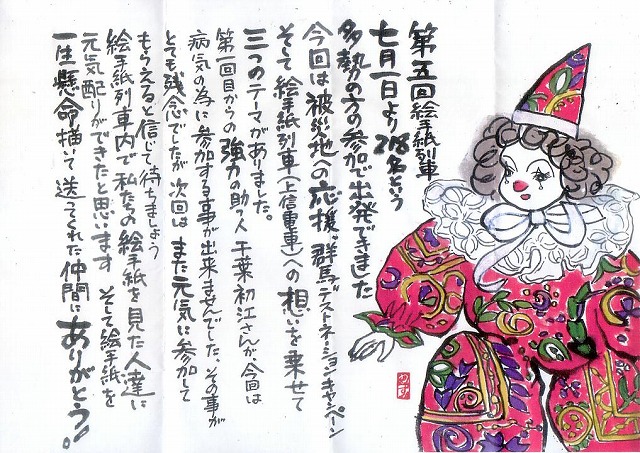 第五回絵手紙列車
七月一日より208名という
多勢の方の参加で出発できました
今回は被災地の応援。群馬デストネーションキャンペーン
そして絵手紙列車(上信電車)への想いを乗せて
三つのテーマがありました。
第一回目からの強力の助っ人千葉初江さんが、今回は
病気の為に参加する事が出来ませんでした、その事が
とても残念でしたが次回はまた元気に参加して
もらえると信じて待ちましょう
絵手紙列車内で私たちの絵手紙を見た人達に
元気配りができたと思います そして絵手紙を
一生懸命描いて送ってくれた仲間にありがとう!